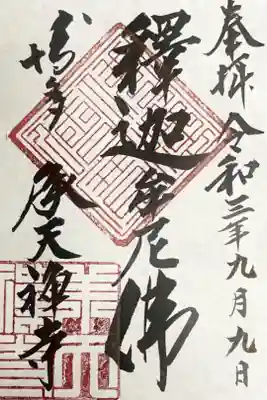 奉拝 令和三年九月九日
釋迦牟尼佛
博多 承天禅寺